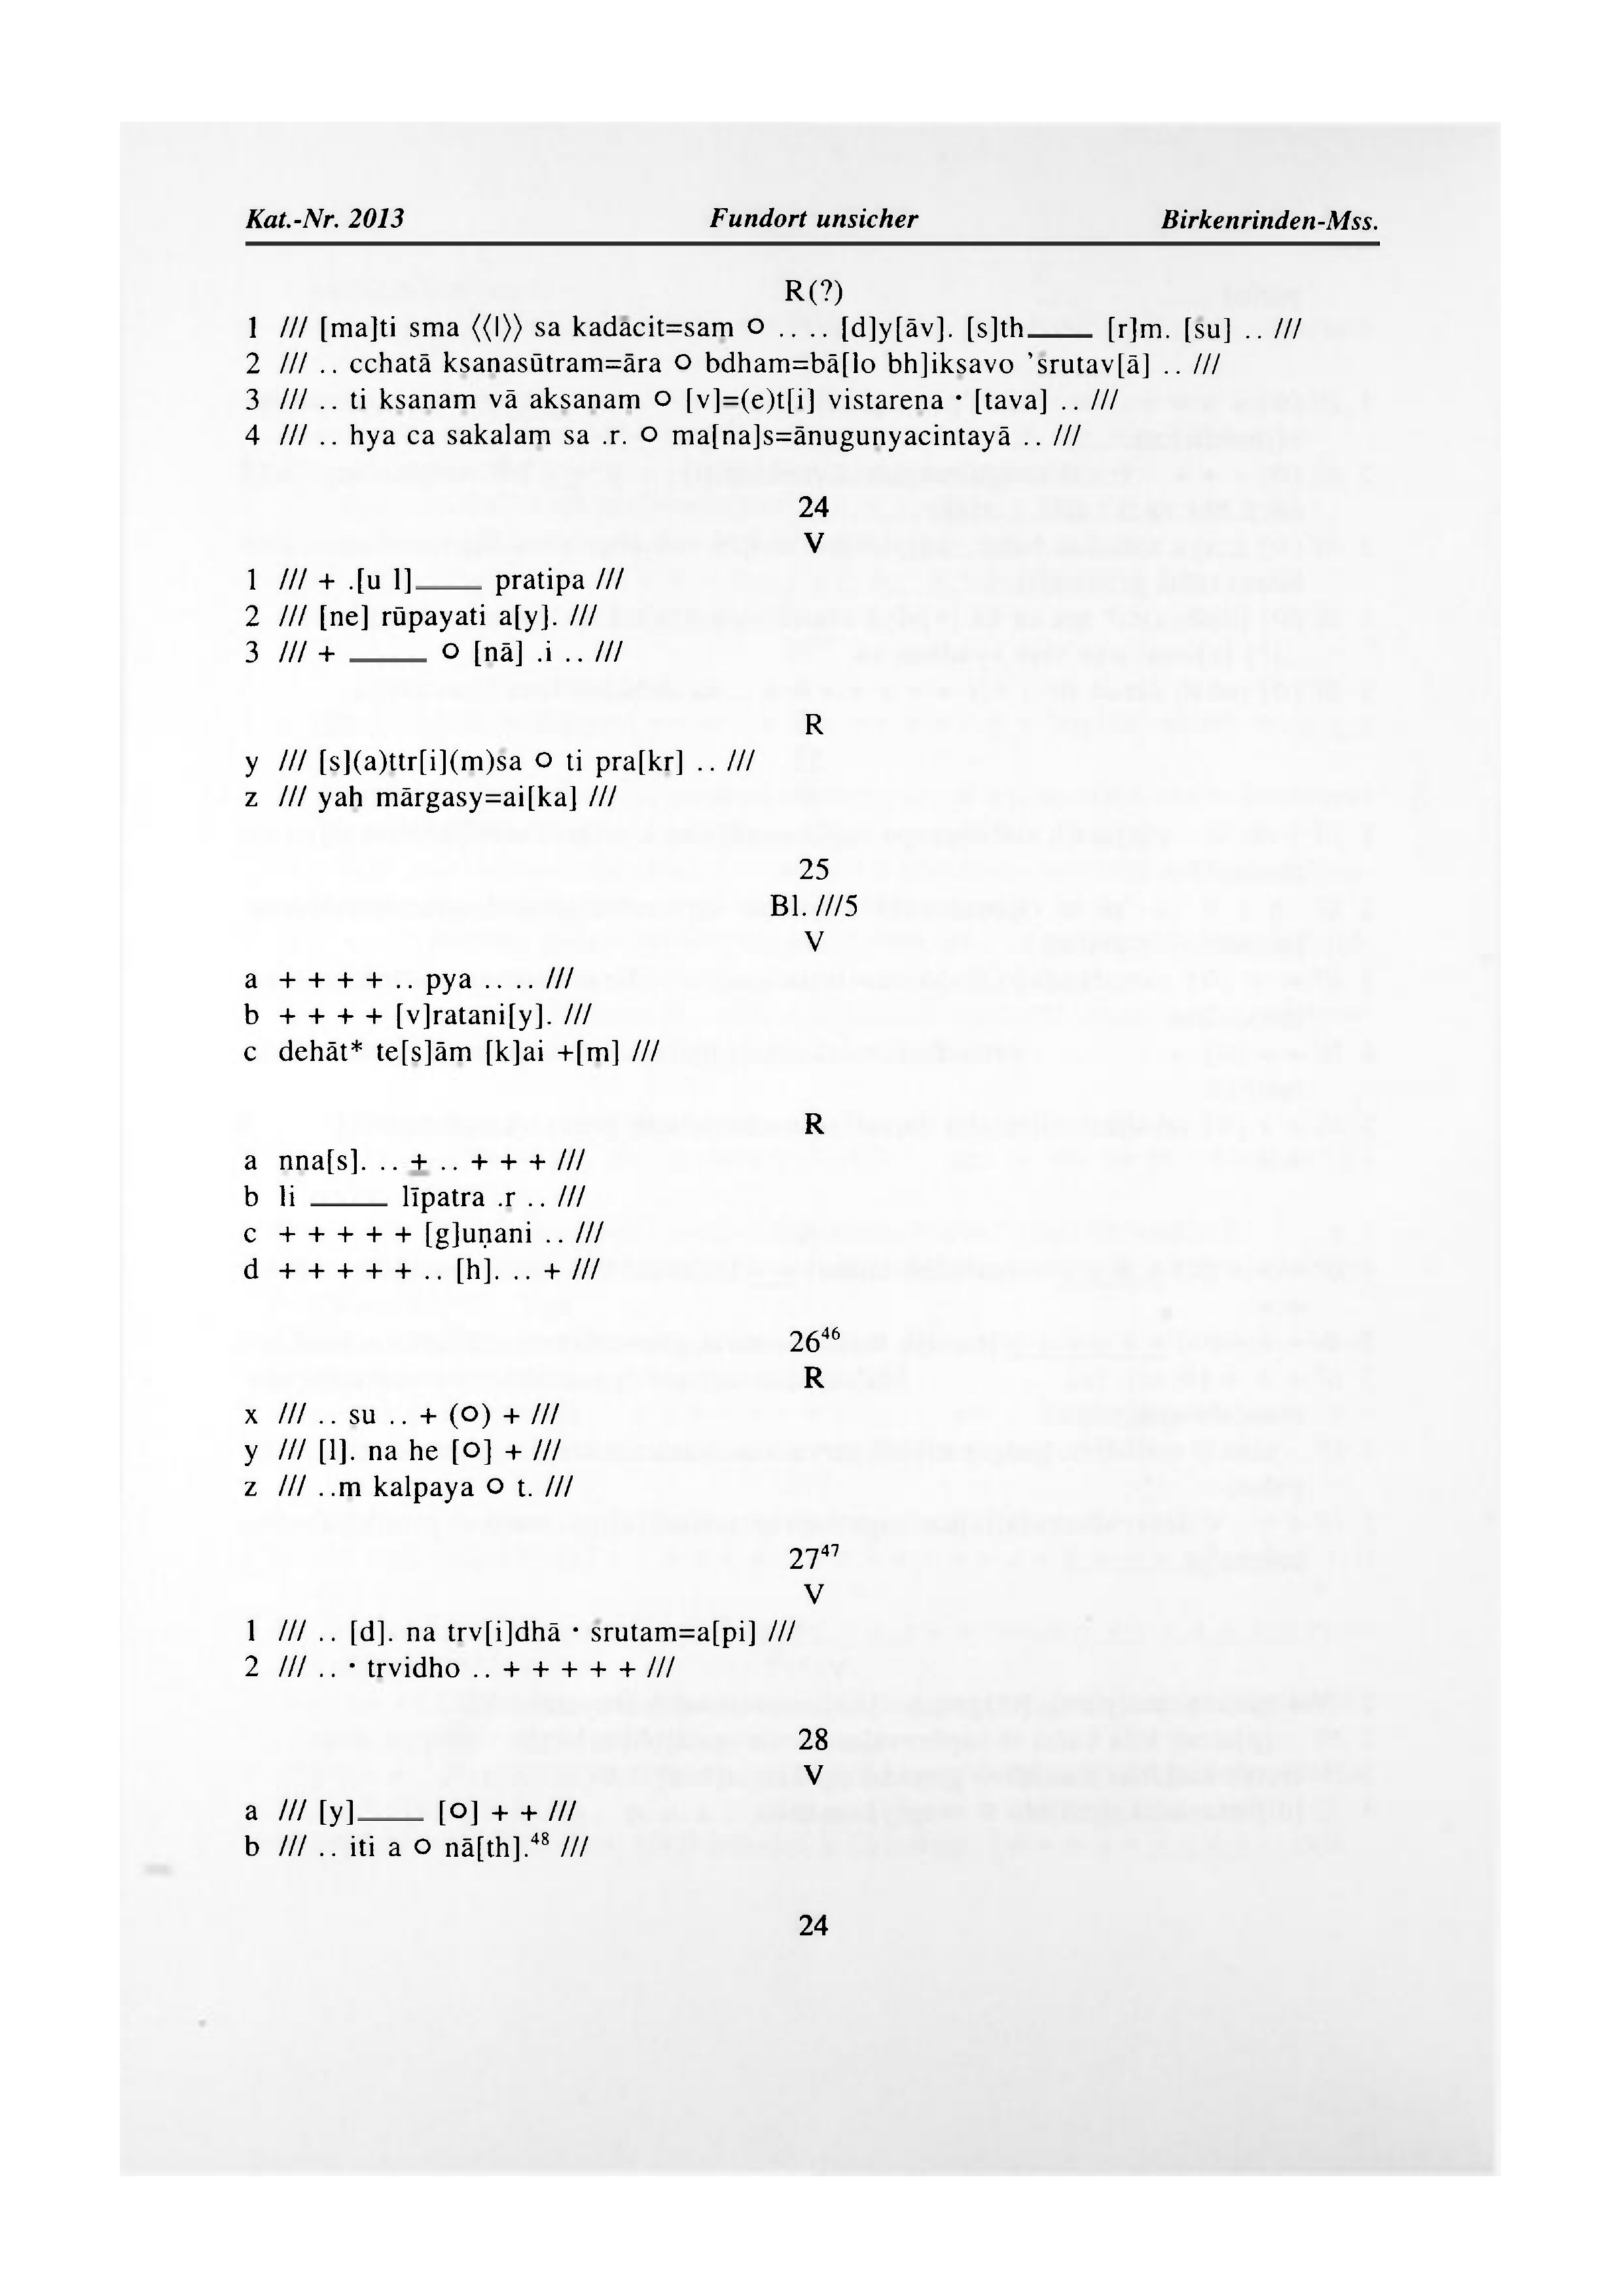 Kat.-Nr. 2013 Fundort unsicher Birkenrinden-Mss.
R(?)
1 /// [ma]ti sma ⟨⟨|⟩⟩ sa kadācit=saṃ O .. .. [d]y[āv]. [s]th____ [r]m. [śu] .. ///
2 /// .. cchatā kṣaṇasūtram=āra O bdham=bā[lo bh]ikṣavo ’śrutav[ā] .. ///
3 /// .. ti kṣaṇaṃ vā akṣaṇaṃ O [v]=(e)t[i] vistareṇa • [tava] .. ///
4 /// .. hya ca sakalaṃ sa .r. O ma[na]s=ānuguṇyacintayā .. ///
24
V
1 /// + .[u l]____ pratipa ///
2 /// [ne] rūpayati a[y]. ///
3 /// + ____ O [nā] .i .. ///
R
y /// [ṣ](a)ttr[i](ṃ)śa O ti pra[kṛ] .. ///
z /// yaḥ mārgasy=ai[ka] ///
25
Bl. ///5
V
a + + + + .. pya .. .. ///
b + + + + [v]ratani[y]. ///
c dehāt* te[ṣ]ām [k]ai +[ṃ] ///
R
a ṇṇa[s]. .. + .. + + + ///
b li ____ līpatra .ṛ .. ///
c + + + + + [g]uṇani .. ///
d + + + + + .. [h]. .. + ///
26⁴⁶
R
x /// .. ṣu .. + (O) + ///
y /// [l]. na he [O] + ///
z /// ..ṃ kalpaya O t. ///
27⁴⁷
V
1 /// .. [d]. na tṛv[i]dhā • śrutam=a[pi] ///
2 /// .. • tṛvidho .. + + + + + ///
28
V
a /// [y]____ [O] + + ///
b /// .. iti a O nā[th].⁴⁸ ///
24